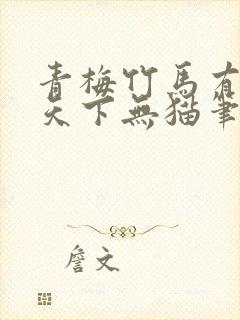 青梅竹馬有
天下無猫筆
詹文